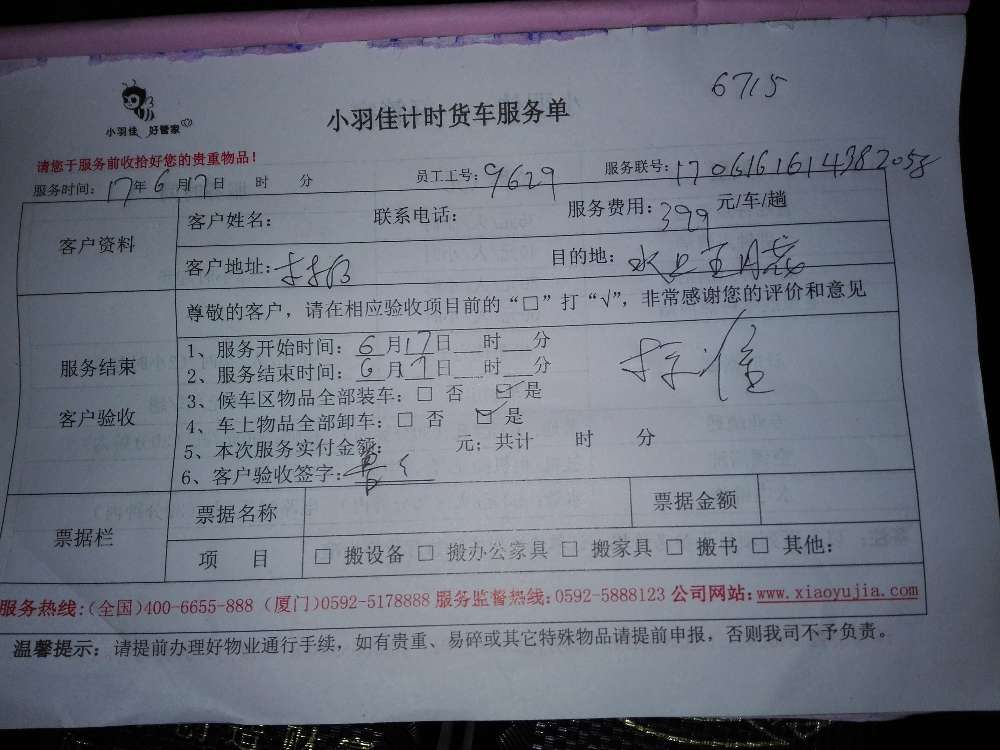 6715
小羽佳 好管家
小羽佳计时货车服务单
请您于服务前收拾好您的贵重物品！
服务时间：17年6月17日 时 分 员工工号：9629 服务联号：17061616143982058
客户资料
客户姓名： 联系电话： 服务费用：399 元/车/趟
客户地址： 目的地：
服务结束
客户验收
尊敬的客户，请在相应验收项目前的“□”打“√”，非常感谢您的评价和意见
1、服务开始时间：6月17日 时 分
2、服务结束时间：6月17日 时 分
3、候车区物品全部装车：□ 否 ☑ 是
4、车上物品全部卸车：□ 否 ☑ 是
5、本次服务实付金额： 元；共计 时 分
6、客户验收签字：
票据栏
票据名称 票据金额
项 目 □ 搬设备 □ 搬办公家具 □ 搬家具 □ 搬书 □ 其他：
服务热线：（全国）400-6655-888（厦门）0592-5178888 服务监督热线：0592-5888123 公司网站：www.xiaoyujia.com
温馨提示：请提前办理好物业通行手续，如有贵重、易碎或其它特殊物品请提前申报，否则我司不予负责。